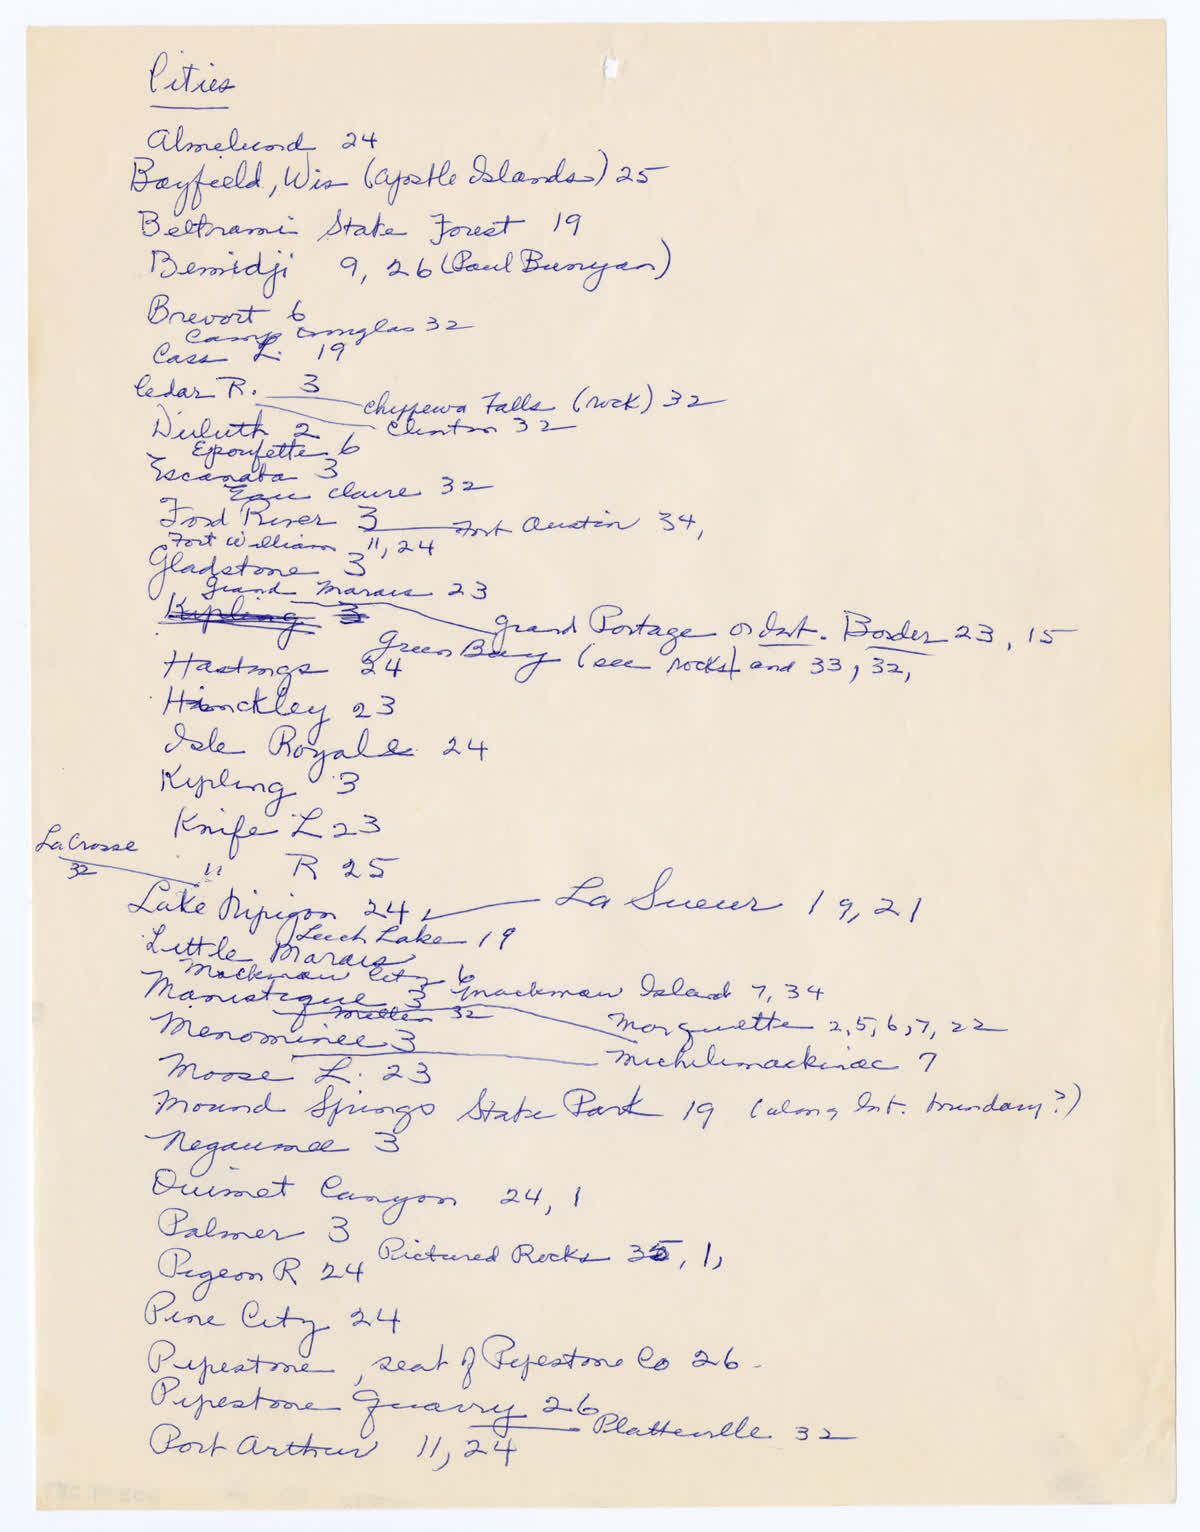 Cities
Almelund 24
Bayfield, Wis (Apostle Islands) 25
Beltrami State Forest 19
Bemidji 9, 26 (Paul Bunyan)
Brevort 6
Camp Douglas 32
Cass L. 19
Cedar R. 3
Chippewa Falls (rock) 32
Duluth 2
Clinton 32
Epoufette 6
Escanaba 3
Eau Claire 32
Ford River 3
Fort Austin 34,
Fort William 11, 24
Gladstone 3
Grand Marais 23
Kipling 3
Grand Portage or Int. Border 23, 15
Green Bay (see rocks) and 33, 32,
Hastings 24
Hinckley 23
Isle Royale 24
Kipling 3
Knife L 23
LaCrosse
32
" R 25
Lake Nipigon 24
La Sueur 19, 21
Leech Lake 19
Little Marais
Mackinaw City 6
Manistique 3
Mackinaw Island 7, 34
32
Marquette 2, 5, 6, 7, 22
Menominee 3
Michilimackinac 7
Moose L. 23
Mound Springs State Park 19 (along Int. boundary?)
Negaumee 3
Ouimet Canyon 24, 1
Palmer 3
Pictured Rocks 35, 1,
Pigeon R 24
Pine City 24
Pipestone, seat of Pipestone Co 26.
Pipestone Quarry 26
Platteville 32
Port Arthur 11, 24